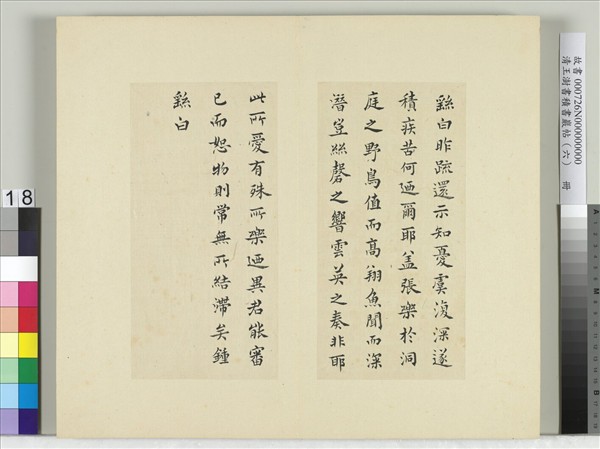 故書 000726N000000000
清王澍書積書巖帖（六） 冊
繇白昨疏還示知憂虞復深遂
積疾苦何迺爾耶盖張樂於洞
庭之野鳥值而高翔魚聞而深
潛豈絲磬之響雲英之奏非耶
此所愛有殊所樂迺異君能審
己而恕物則常無所結滯矣鍾
繇白
18